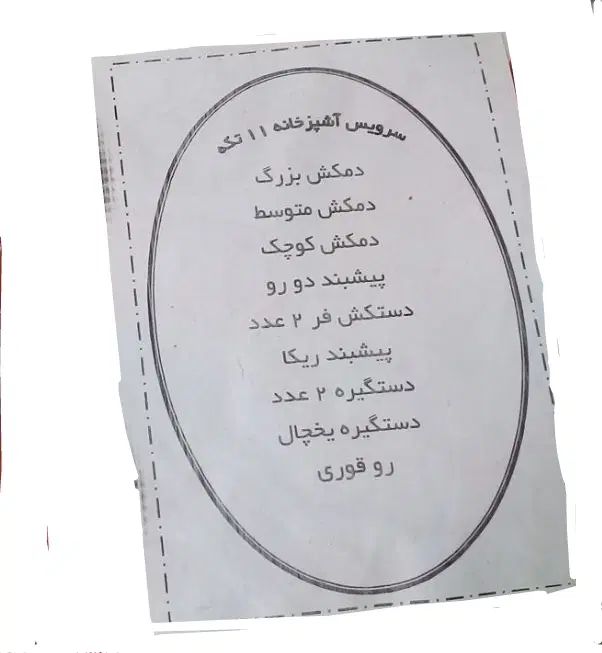 سرویس آشپزخانه ۱۱ تکه
دمکش بزرگ
دمکش متوسط
دمکش کوچک
پیشبند دو رو
دستکش فر ۲ عدد
پیشبند ریکا
دستگیره ۲ عدد
دستگیره یخچال
رو قوری